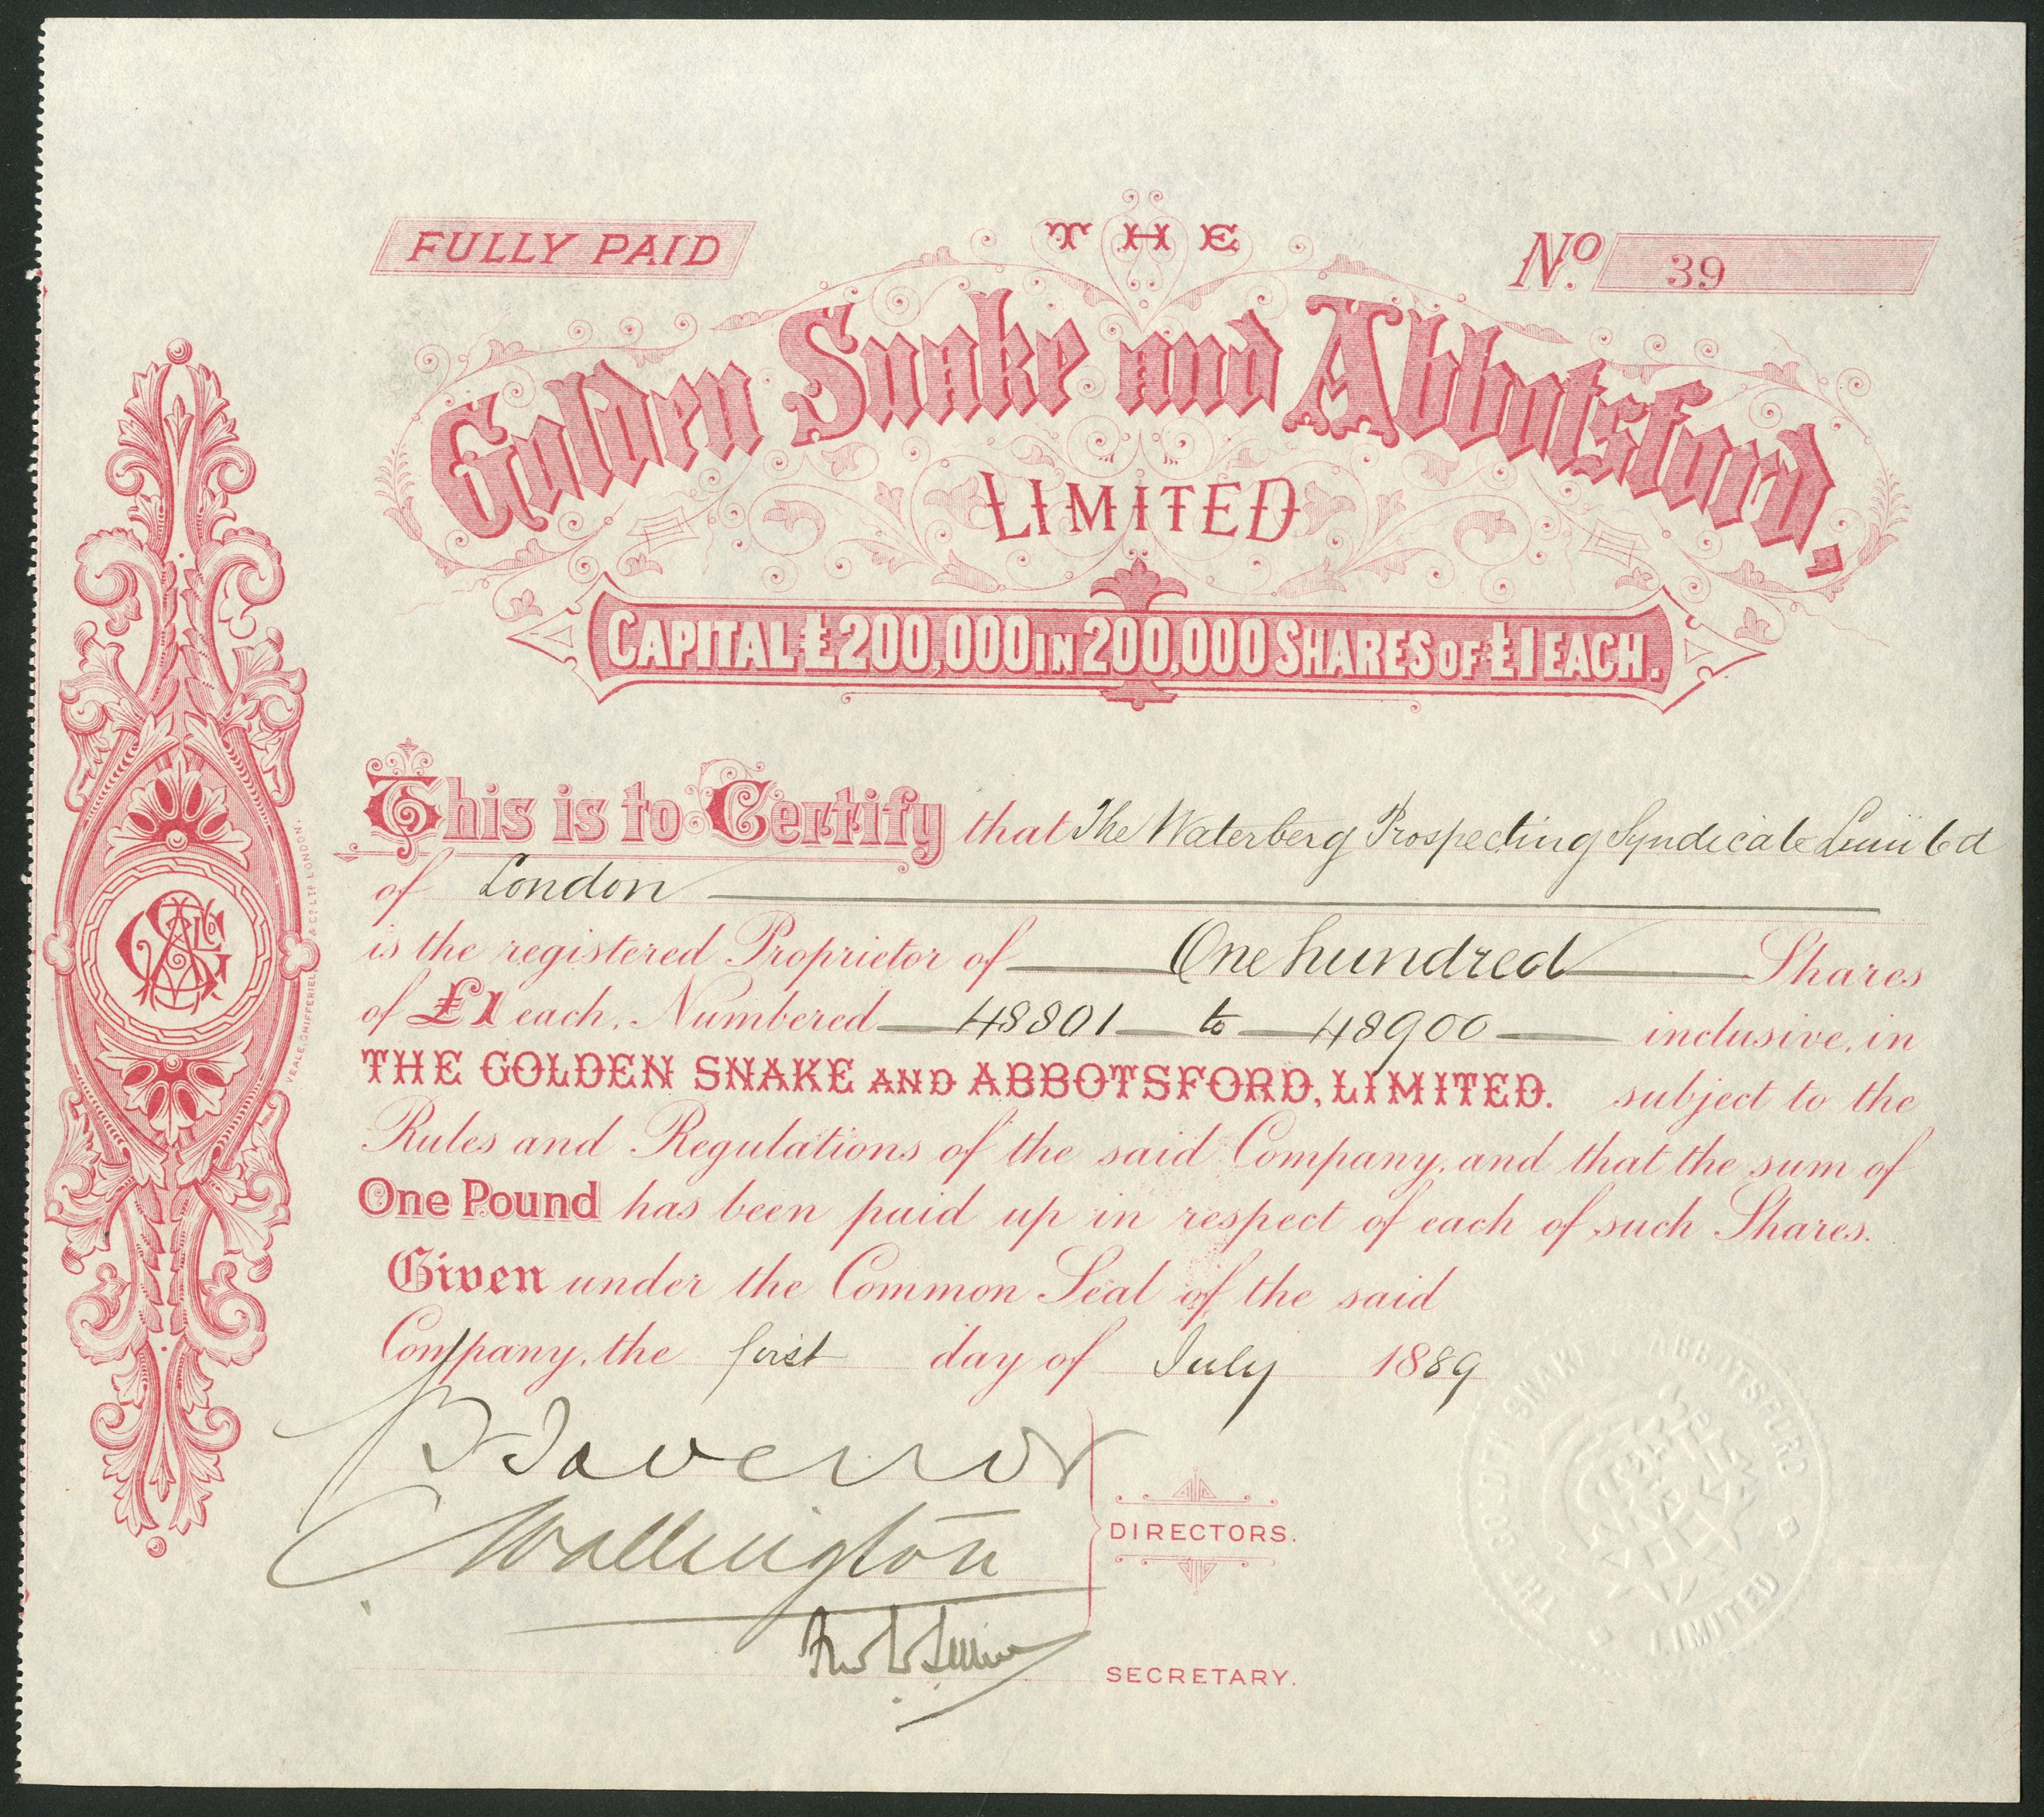 FULLY PAID
THE
No. 39
Golden Snake and Abbotsford,
LIMITED
CAPITAL £200,000 IN 200,000 SHARES OF £1 EACH.
This is to Certify that The Waterberg Prospecting Syndicate Limited
of London
is the registered Proprietor of One hundred Shares
of £1 each, Numbered 48801 to 48900 inclusive, in
THE GOLDEN SNAKE AND ABBOTSFORD, LIMITED. subject to the
Rules and Regulations of the said Company, and that the sum of
One Pound has been paid up in respect of each of such Shares.
Given under the Common Seal of the said
Company, the first day of July 1889
Wallington
DIRECTORS.
SECRETARY.
VEALE, CHIFFERIEL & CO. LTD LONDON.
THE GOLDEN SNAKE & ABBOTSFORD
LIMITED